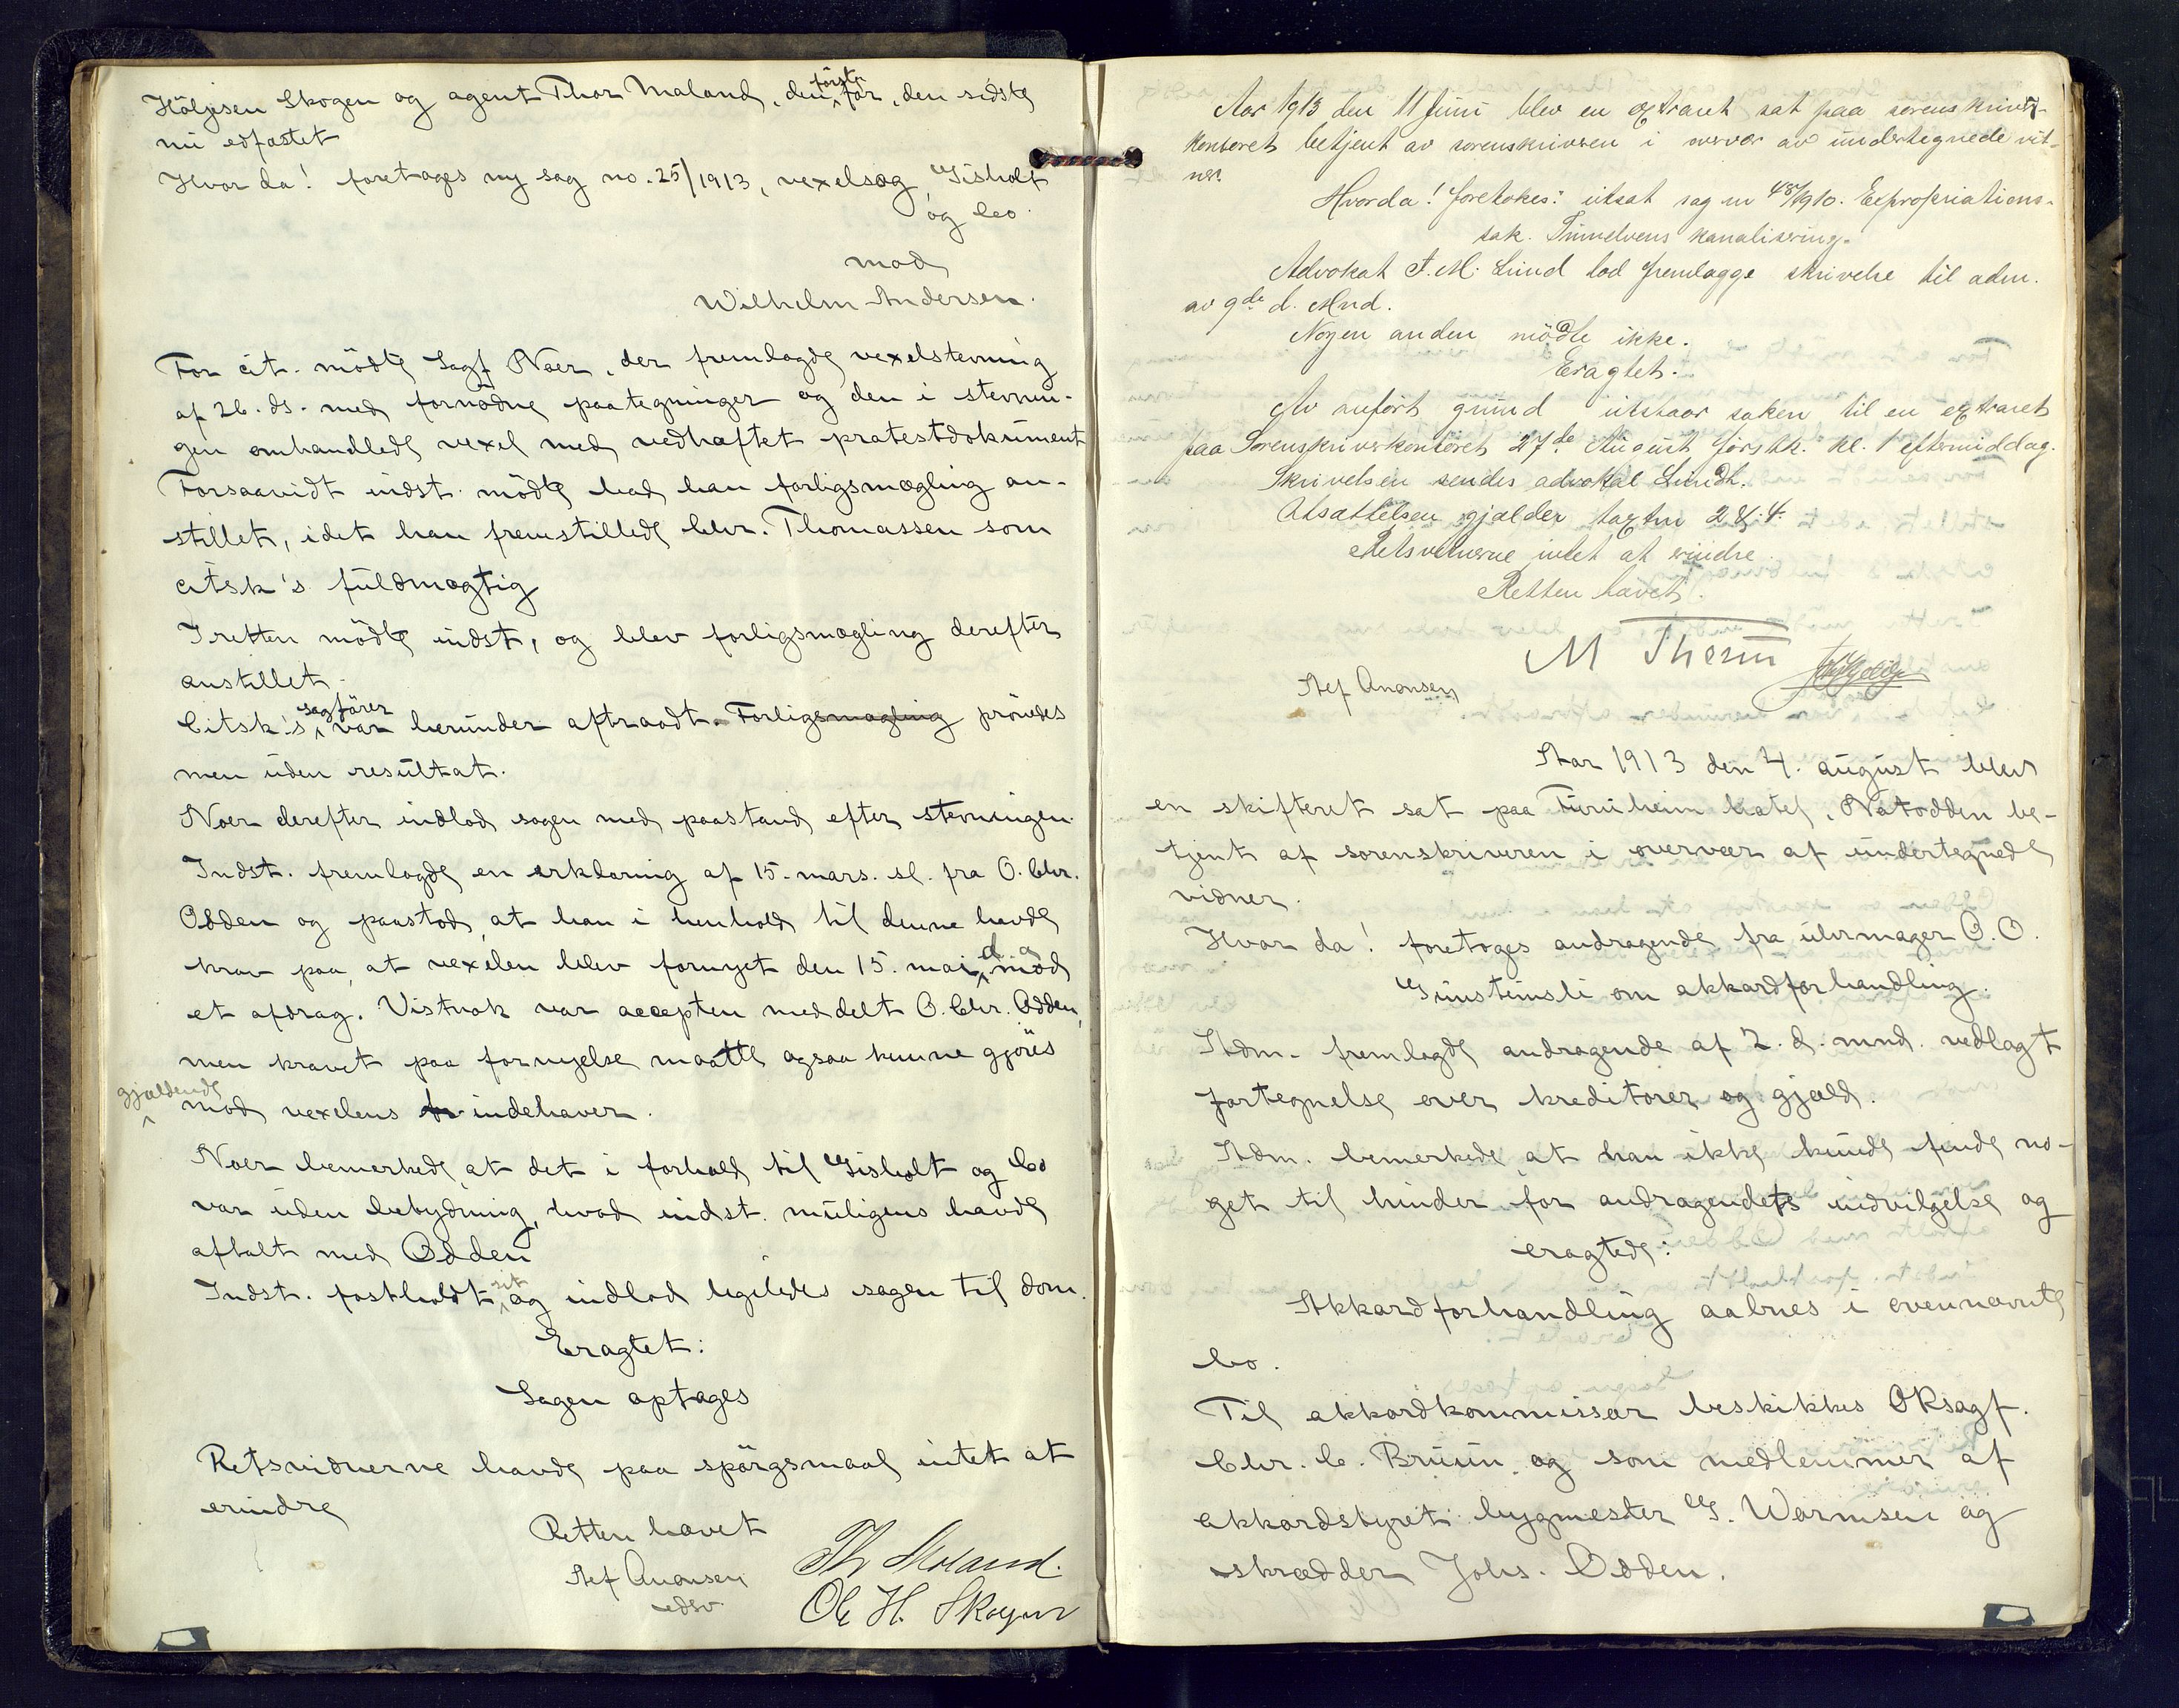 Höljesen Skogen og agent Thor Moland, den første før, den sidste
nu edfæstet
Hvor da! foretoges ny sag no. 25/1913, vexelsag Gisholt
og Co.
mod
Wilhelm Andersen.
For cit. mödte Sagf Noer, der fremlagde vexelstevning
af 26. ds. med fornødne paategninger og den i stevnin-
gen omhandlede vexel med vedhæftet protestdokument
Forsaavidt indst. mödte bad han forligsmægling an-
stillet, idet han fremstillede Chr. Thomassen som
citsk's fuldmægtig
I retten mödte indst, og blev forligsmægling derefter
anstillet.
Citsk's sagförer var herunder aftraadt. Forligsmægling prövdes
men uden resultat.
Noer derefter indlod sagen med paastand efter stevningen.
Indst. fremlagde en erklæring af 15. mars. sl. fra O. Chr.
Odden og paastod, at han i henhold til denne havde
krav paa, at vexelen blev fornyet den 15. mai d. a. mod
et afdrag. Vistnok var accepten meddelt O. Chr. Odden,
men kravet paa fornyelse maatte ogsaa kunne gjöres
gjældende mod vexelens indehaver.
Noer bemerkede, at det i forhold til Gisholt og Co
var uden betydning, hvad indst. muligens havde
aftalt med Odden
Indst. fastholdt sit og indlod ligeledes sagen til dom.
Eragtet:
Sagen optages
Retsvidnerne havde paa spörgsmaal intet at
erindre
Retten hævet
Stef Anonsen
edsv.
Th Moland.
Ole H. Skogen
Aar 1913 den 11 Juni blev en extraret sat paa sorenskriver-
kontoret betjent av sorenskriveren i overvær av undertegnede vit-
ner.
Hvorda! foretokes: utsat sag nr 48/1910. Expropriations-
sak. Tinnelvens kanalisering.
Advokat F. M. Lund lod fremlægge skrivelse til adm.
av 9de d. Mnd.
Nogen anden mödte ikke.
Eragtet.
Av anfört grund utstaar saken til en extraret
paa Sorenskriverkontoret 27de August förstk. kl. 1 eftermiddag.
Skrivelsen sendes advokat Lund.
Utsættelsen gjælder taxtnr 2 & 4.
Retsvitnerne intet at erindre.
Retten hævet.
M Therm
Stef Anonsen
Aar 1913 den 4. august blev
en skifteret sat paa Furuheim hotel, Notodden be-
tjent af sorenskriveren i overvær af undertegnede
vidner.
Hvor da! foretoges andragende fra uhrmager O. O.
Gunsteinsli om akkordforhandling.
Adm. fremlagde andragende af 2. d. mnd. vedlagt
fortegnelse over kreditorer og gjæld.
Adm. bemerkede, at han ikke kunde finde no-
get til hinder for andragendets indvilgelse og
eragtede:
Akkordforhandling aabnes i ovennævnte
bo.
Til akkordkommissær beskikkes OKsagf.
Chr. C. Bruun og som medlemmer af
akkordstyret: bygmester G. Warmsen og
skrædder Johs. Odden.